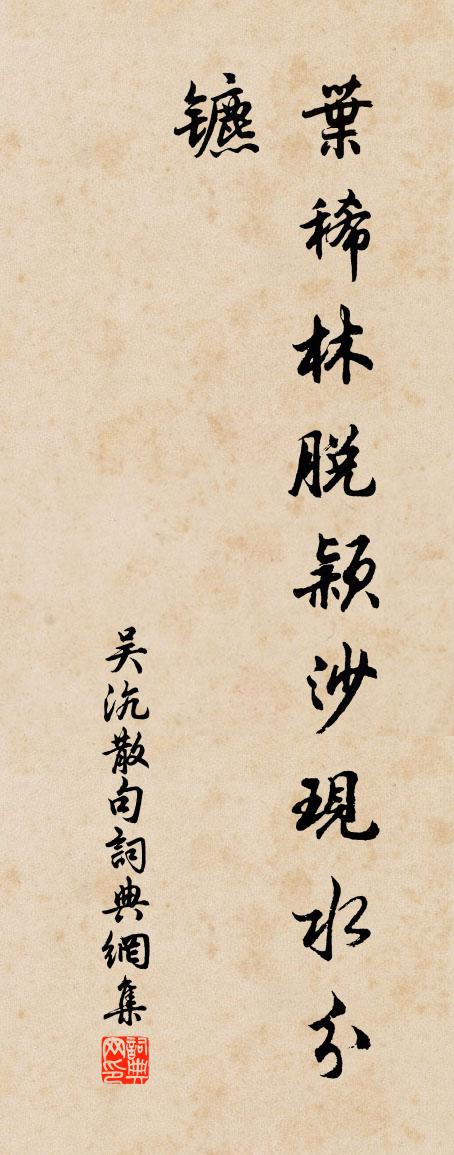 葉稀林脱穎沙現水分
鑣
吴沆散句詞典網集
詞典网印